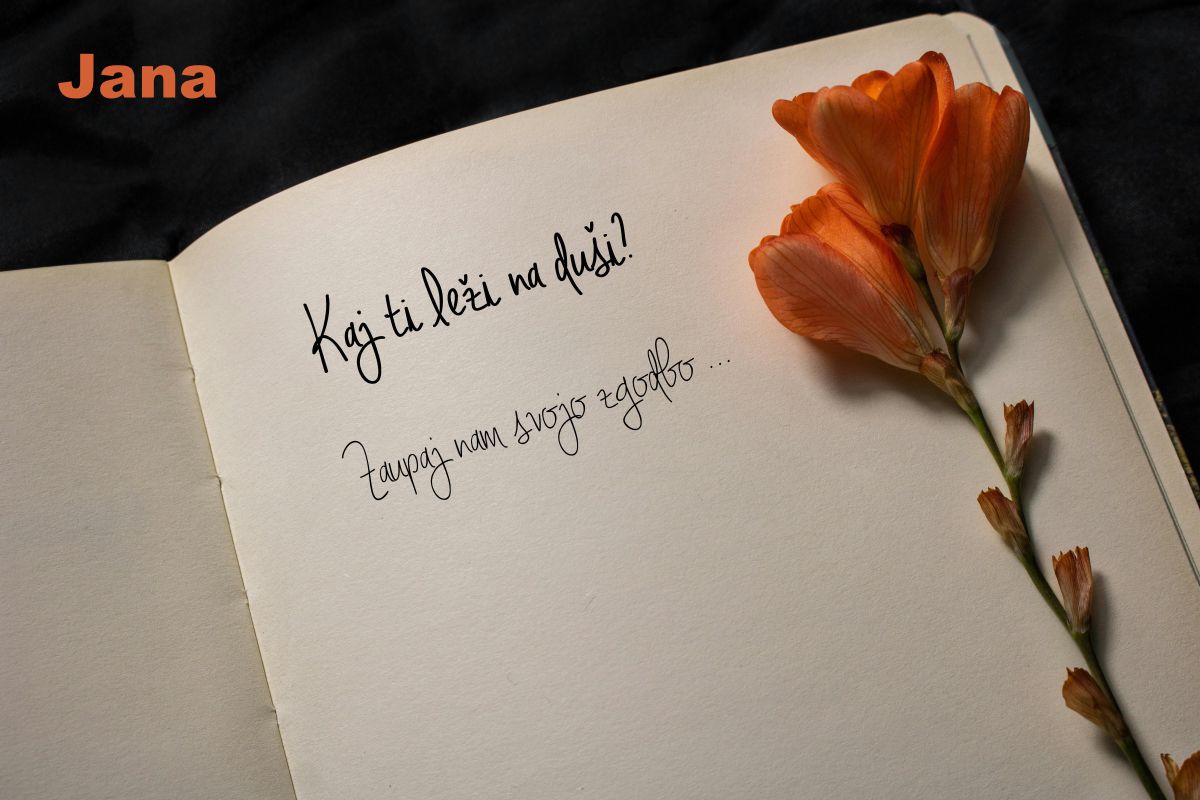 Jana
Kaj ti leži na duši?
Zaupaj nam svojo zgodbo ...